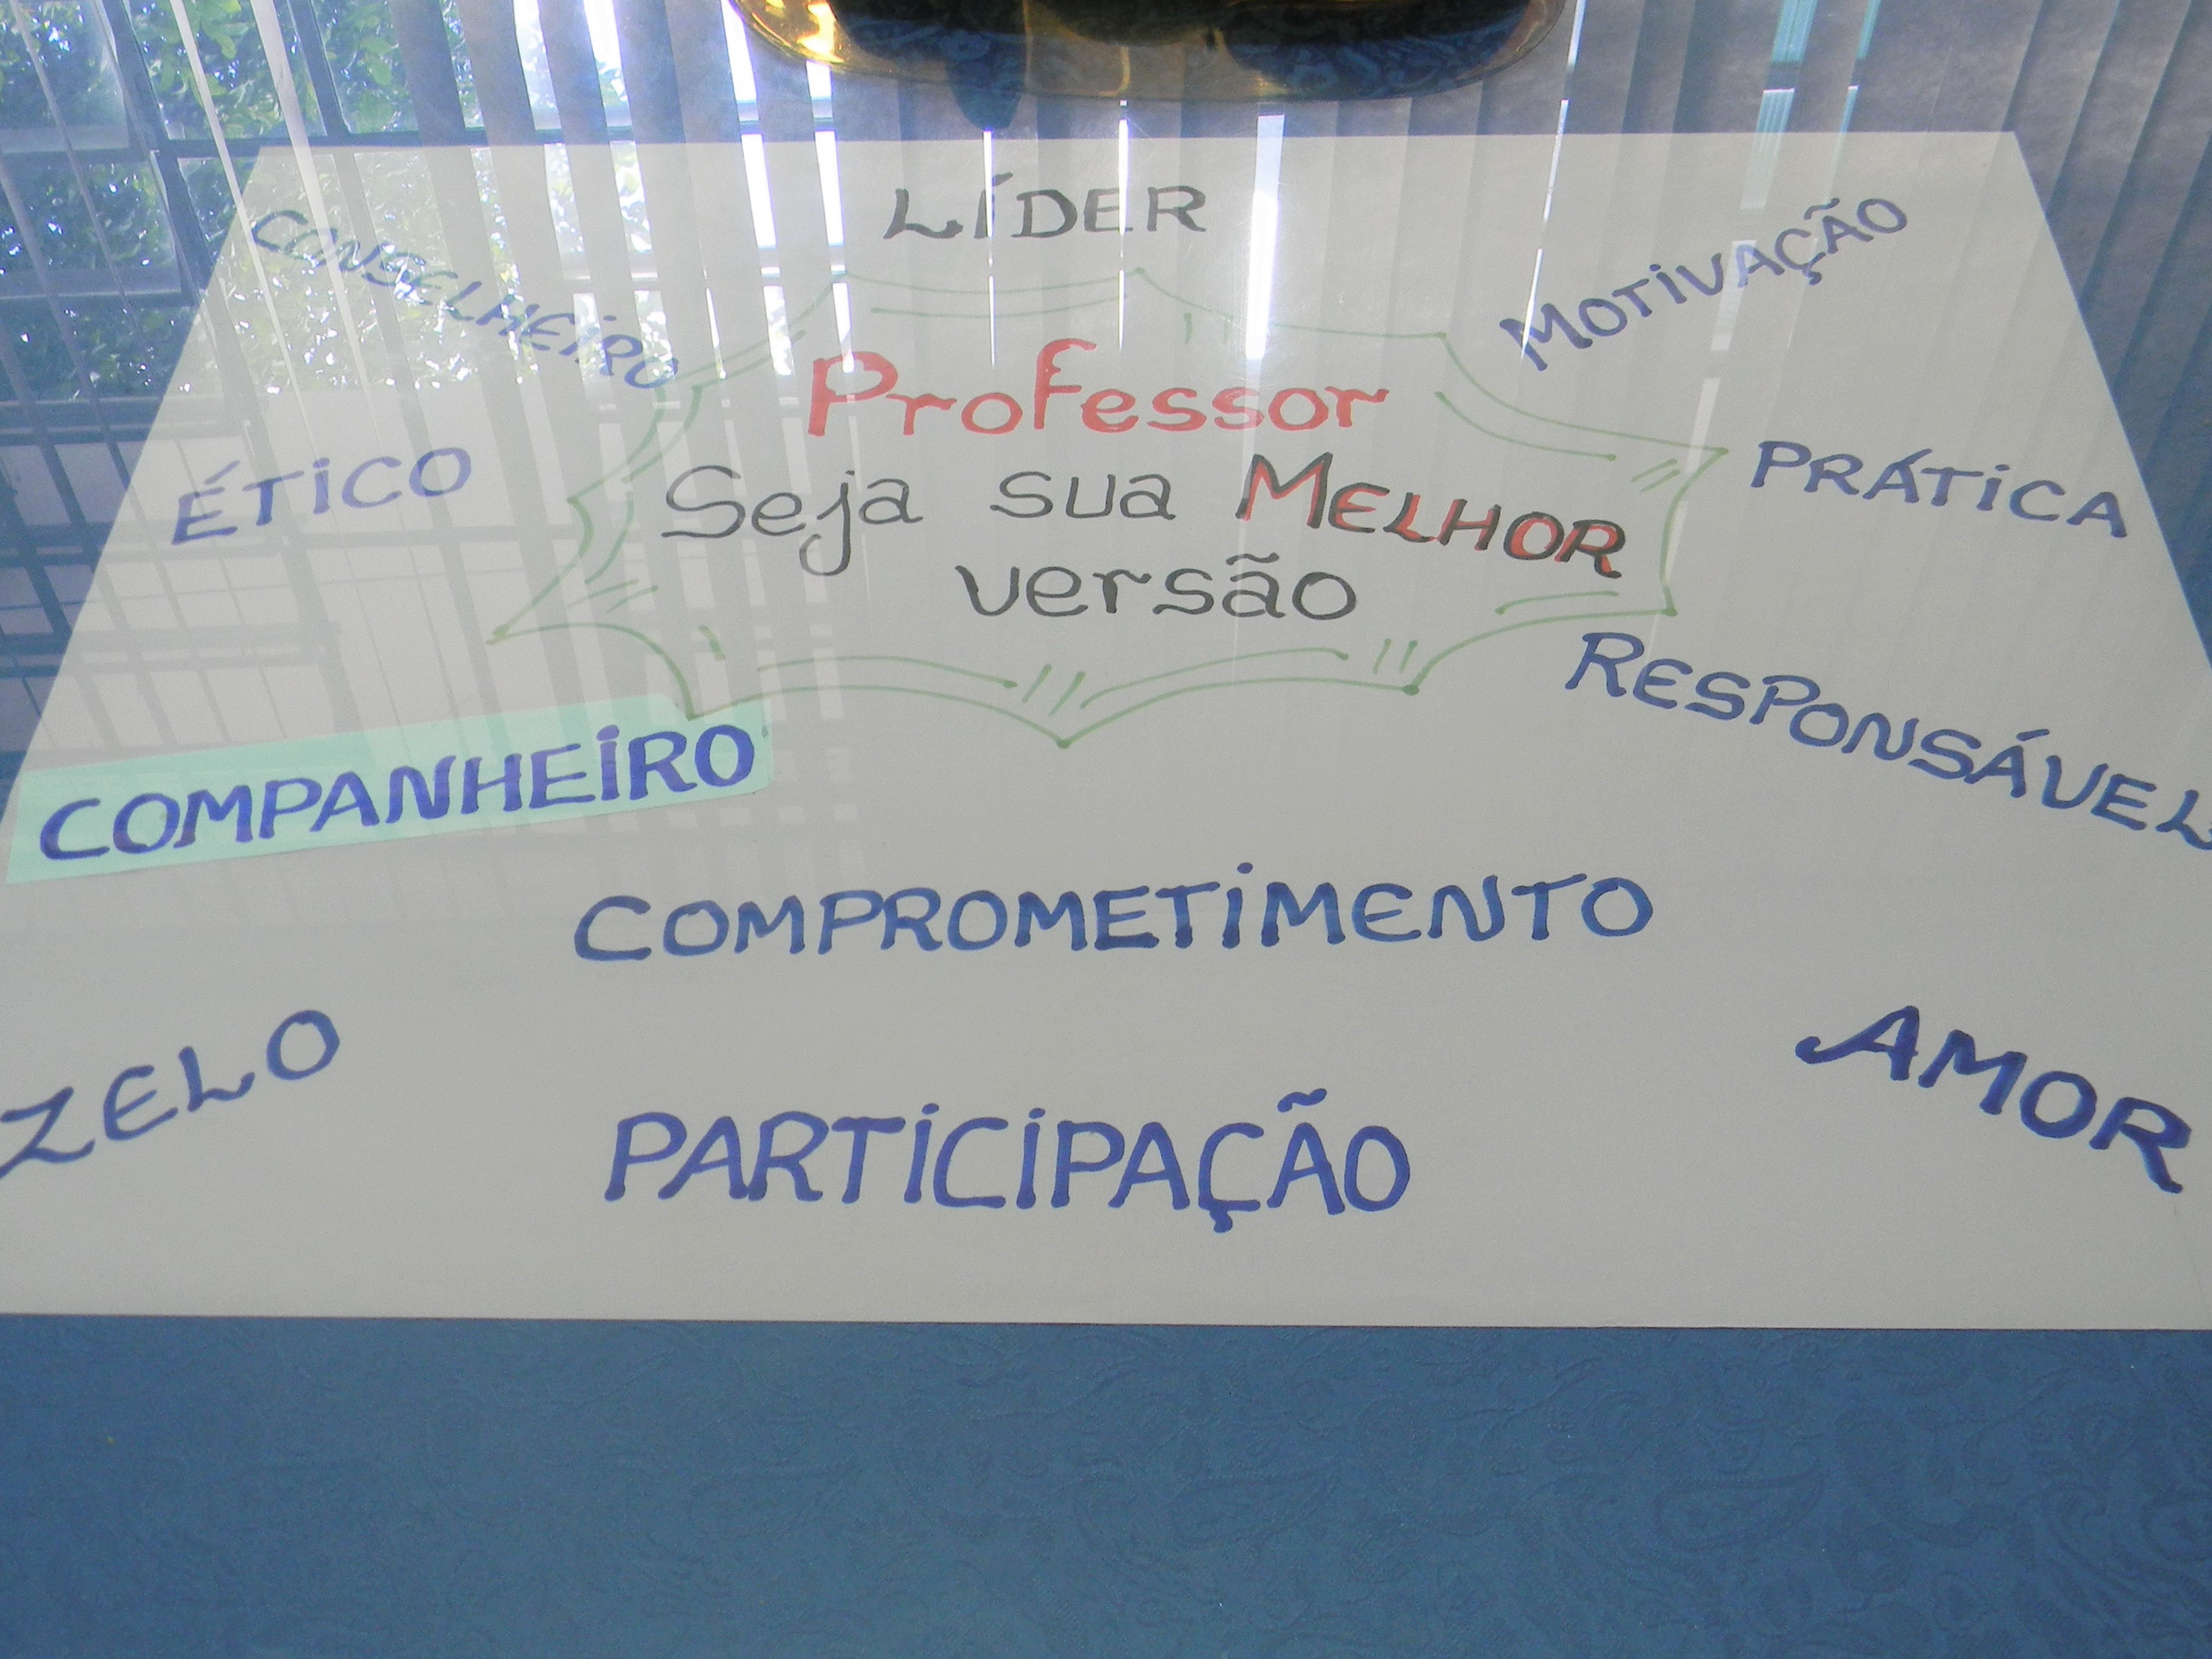 LÍDER
CONSELHEIRO
MOTIVAÇÃO
Professor
Seja sua MELHOR
versão
ÉTICO
PRÁTICA
RESPONSÁVEL
COMPANHEIRO
COMPROMETIMENTO
ZELO
AMOR
PARTICIPAÇÃO